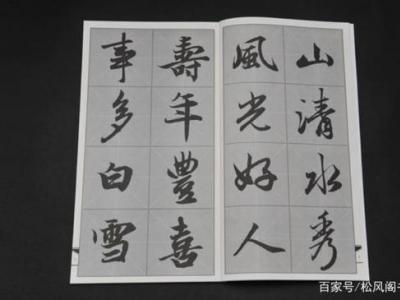 山清水秀
風光好人
壽年豐喜
事多白雪
百家号/松风阁